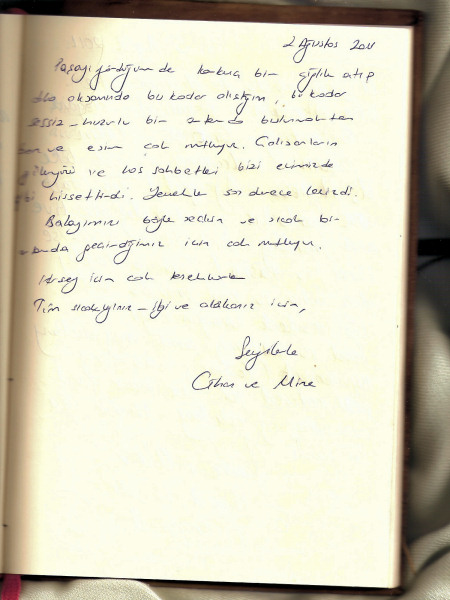 2 Ağustos 2011
Paşayı gördüğümde korkunç bir çığlık atıp
daha akşamında bu kadar alıştığım, bu kadar
sessiz - huzurlu bir ortamda bulunmaktan
ben ve eşim çok mutluyuz. Çalışanların
güleryüzü ve hoş sohbetleri bizi evimizde
gibi hissettirdi. Yemekler son derece lezizdi.
Balayımızı böyle seçkin ve sıcak bir
ortamda geçirdiğimiz için çok mutluyuz.
Herşey için çok teşekkürler
Tüm sıcaklığınız - ilgi ve alakanız için,
Sevgilerle
Cihan ve Mine